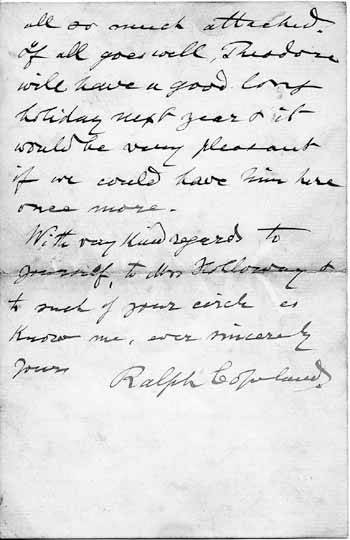 all so much attached.
If all goes well, Theodore
will have a good long
holiday next year & it
would be very pleasant
if we could have him here
once more.
With very kind regards to
yourself, to Mrs Holloway &
to such of your circle as
know me, ever sincerely
yours
Ralph Copeland.